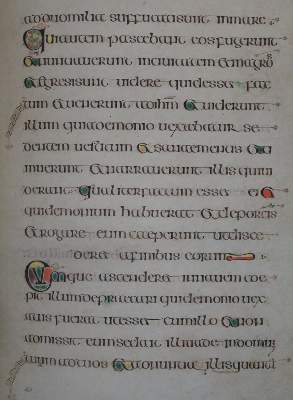 ad duo milia & suffocati sunt in mare
Qui autem pascebant eos fugerunt
& nuntiauerunt in ciuitatem & in agros
& egressi sunt uidere quid esset fac
tum & uenerunt ad ihm & uiderunt
illum qui a demonio uexabatur se
dentem uestitum & sanae mentis & ti
muerunt & narrauerunt illis qui ui
derant qualiter factum esset ei &
qui demonium habuerat & de porcis
& rogare eum coeperunt ut disce
deret a finibus eorum
Cumque ascenderet in nauem coe
pit illum deprecari qui demonio uex
atus fuerat ut esset cum illo & non
admissit eum sed ait illi uade in domum
tuam ad tuos & adnuntia illis quanta